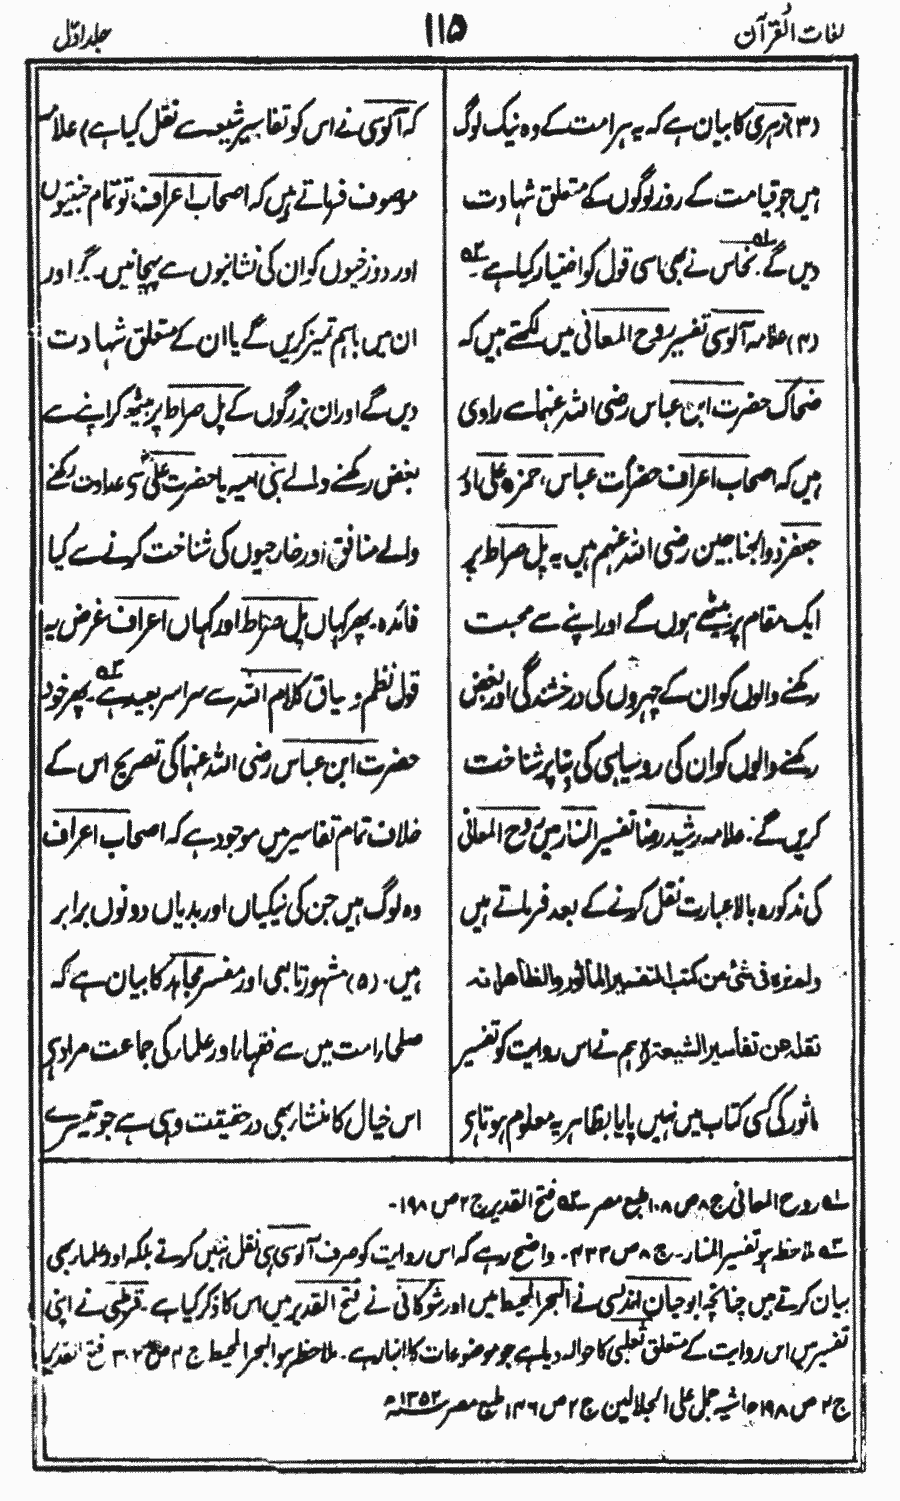 لغات القرآن
۱۱۵
جلد اوّل
(۳) زہری کا بیان ہے کہ یہ ہر امت کے وہ نیک لوگ
ہیں جو قیامت کے روز لوگوں کے متعلق شہادت
دیں گے۔ نحاس نے بھی اسی قول کو اختیار کیا ہے
(۴) علامہ آلوسی تفسیر روح المعانی میں لکھتے ہیں کہ
ضحاک حضرت ابن عباس رضی اللہ عنہما سے راوی
ہیں کہ اصحاب اعراف حضرات عباس، حمزہ علی اور
جعفر ذوالجناحین رضی اللہ عنہم ہیں یہ پل صراط پر
ایک مقام پر بیٹھے ہوں گے اور اپنے سے محبت
رکھنے والوں کو ان کے چہروں کی درخشندگی اور بغض
رکھنے والوں کو ان کی روسیاہی کی بنا پر شناخت
کریں گے۔ علامہ رشید رضا تفسیر المنار میں روح المعانی
کی مذکورہ بالا عبارت نقل کرنے کے بعد فرماتے ہیں
ولم نره فی شئ من کتب التفسیر المأثور والظاهر انه
نقله عن تفاسیر الشیعة (ہم نے اس روایت کو تفسیر
ماثور کی کسی کتاب میں نہیں پایا بظاہر یہ معلوم ہوتا ہے
کہ آلوسی نے اس کو تفاسیر شیعہ سے نقل کیا ہے) علامہ
موصوف فرماتے ہیں کہ اصحاب اعراف تو تمام جنتیوں
اور دوزخیوں کو ان کی نشانیوں سے پہچانیں گے اور
ان میں باہم تمیز کریں گے یا ان کے متعلق شہادت
دیں گے اور ان بزرگوں کے پل صراط پر بیٹھ کر اپنے سے
بغض رکھنے والے بنی امیہ یا حضرت علی سے عداوت رکھنے
والے منافق اور خارجیوں کی شناخت کرنے سے کیا
فائدہ۔ پھر کہاں پل صراط اور کہاں اعراف غرض یہ
قول نظم و سیاق کلام اللہ سے سراسر بعید ہے۔ پھر خود
حضرت ابن عباس رضی اللہ عنہما کی تصریح اس کے
خلاف تمام تفاسیر میں موجود ہے کہ اصحاب اعراف
وہ لوگ ہیں جن کی نیکیاں اور بدیاں دونوں برابر
ہیں۔ (۵) مشہور تابعی اور مفسر مجاہد کا بیان ہے کہ
صلحاء امت میں سے فقہاء اور علماء کی جماعت مراد ہے
اس خیال کا منشاء بھی درحقیقت وہی ہے جو تیسرے
۱ے روح المعانی ج ۸ ص ۱۰۸ طبع مصر ۲ے فتح القدیر ج ۲ ص ۱۹۸۔
۳ے ملاحظہ ہو تفسیر المنار۔ ج ۸ ص ۴۳۳۔ واضح رہے کہ اس روایت کو صرف آلوسی ہی نقل نہیں کرتے بلکہ اور علماء بھی
بیان کرتے ہیں چنانچہ ابو حیان اندلسی نے البحر المحیط میں اور شوکانی نے فتح القدیر میں اس کا ذکر کیا ہے۔ قرطبی نے اپنی
تفسیر میں اس روایت کے متعلق ثعلبی کا حوالہ دیا ہے جو موضوعات کا انبار ہے۔ ملاحظہ ہو البحر المحیط ج ۴ ص ۳۰۲ فتح القدیر
ج ۲ ص ۱۹۸ حاشیہ جمل علی الجلالین ج ۲ ص ۱۴۶ طبع مصر ۱۳۵۲ھ